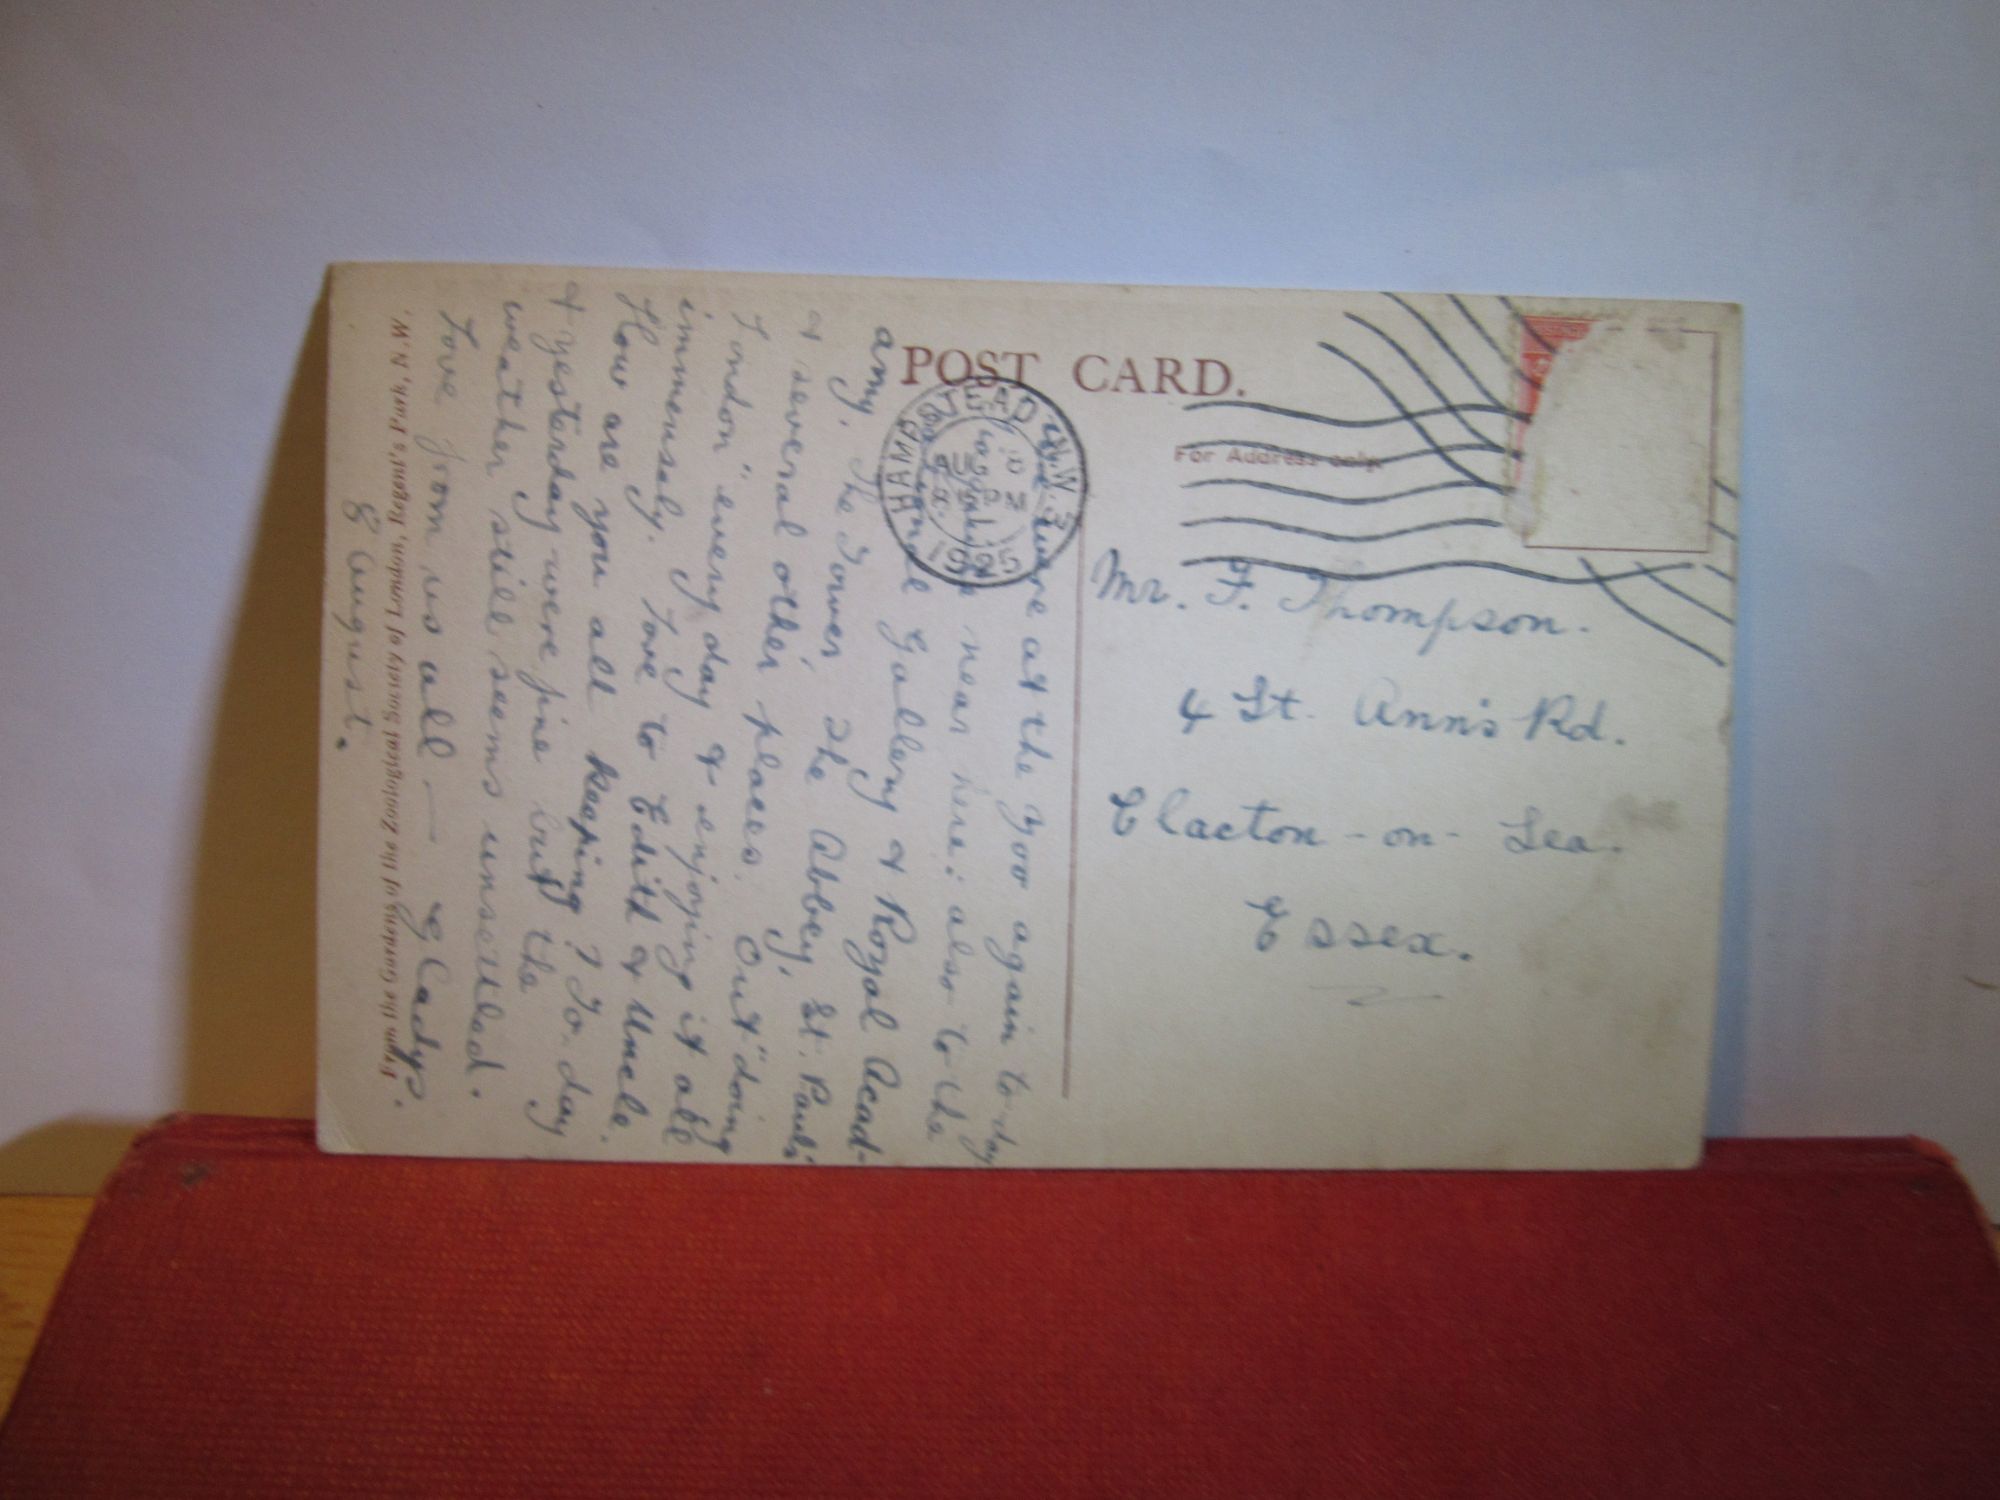 POST CARD.
For Address only.
HAMPSTEAD N.W.3
AUG
8 15 PM
1925
Mr. F. Thompson.
4 St. Ann's Rd.
Clacton - on - Sea.
Essex.
are at the Zoo again to-day
near here: also to the
Gallery & Royal Acad-
amy. The Tower, The Abbey, St. Pauls'
& several other places. Out "doing
London" every day & enjoying it all
immensely. Love to Edith & Uncle.
How are you all keeping? To-day
& yesterday were fine but the
weather still seems unsettled.
Love from us all — Gladys.
8 August.
From the Gardens of the Zoological Society of London, Regent's Park, N.W.